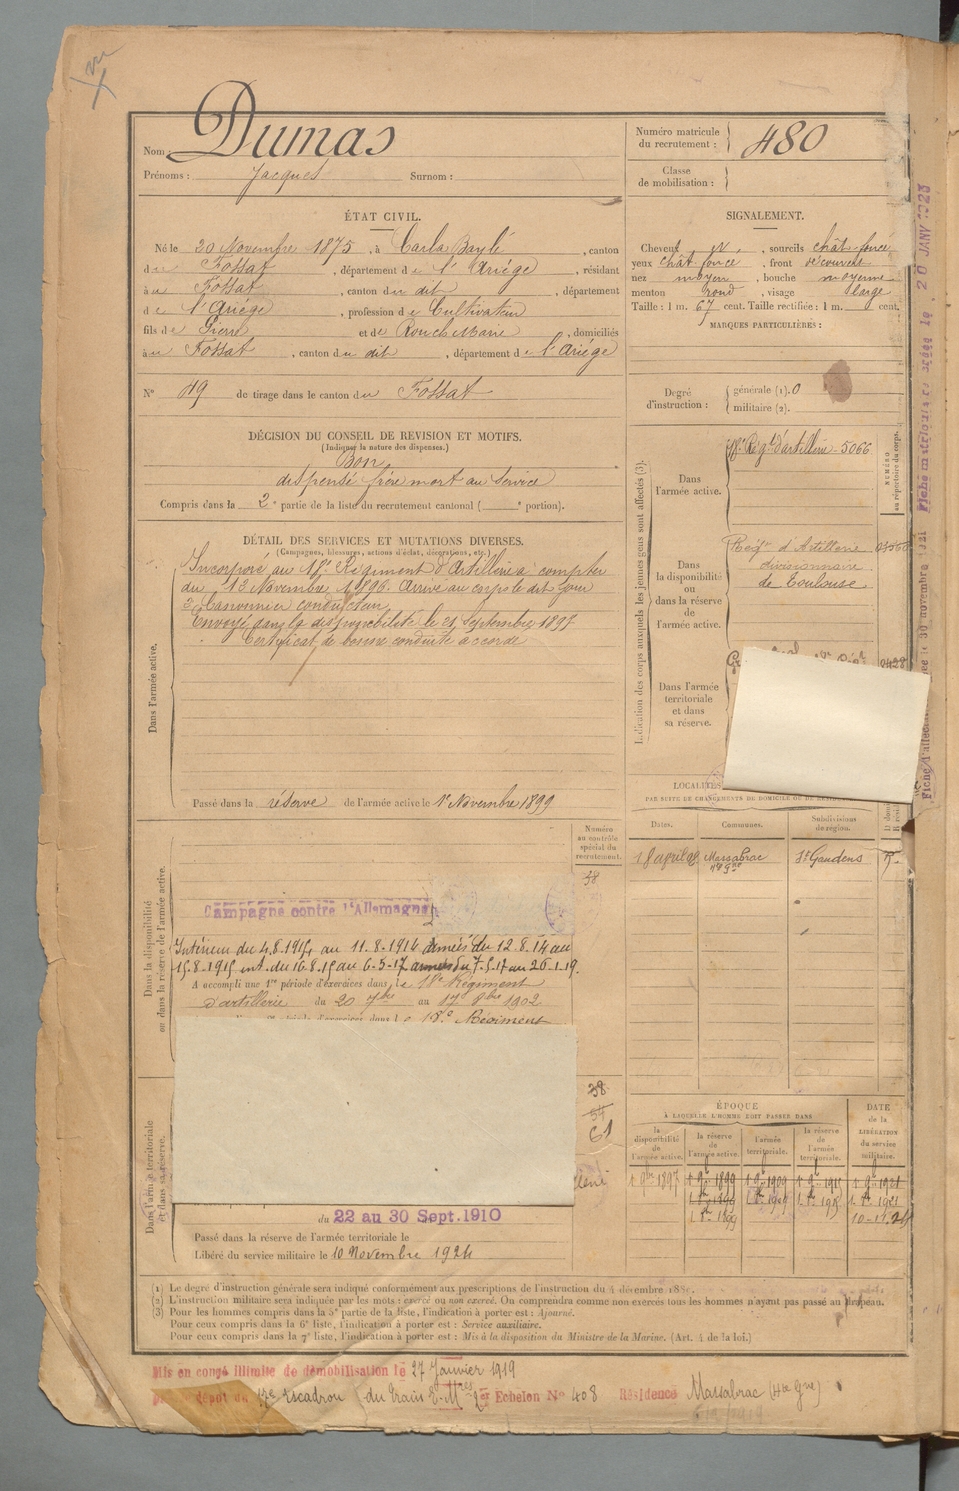 Nom : Dumas
Prénoms : Jacques Surnom :
Numéro matricule
du recrutement : 480
Classe
de mobilisation :
ÉTAT CIVIL.
Né le 20 Novembre 1875, à Carla Baylé, canton
du Fossat, département de l'Ariége, résidant
à u Fossat, canton du dit, département
de l'Ariége, profession de Cultivateur
fils de Pierre et de Rouch Marie, domiciliés
à u Fossat, canton du dit, département de l'Ariége
SIGNALEMENT.
Cheveux N., sourcils chât. foncé
yeux chât. foncé, front découvert
nez moyen, bouche moyenne
menton rond, visage large
Taille : 1 m. 67 cent. Taille rectifiée : 1 m. cent.
MARQUES PARTICULIÈRES :
N° 49 de tirage dans le canton du Fossat
Degré
d'instruction :
générale (1). 0
militaire (2).
DÉCISION DU CONSEIL DE REVISION ET MOTIFS.
(Indiquer la nature des dispenses.)
Bon
dispensé frère mort au service
Compris dans la 2e partie de la liste du recrutement cantonal ( e portion).
DÉTAIL DES SERVICES ET MUTATIONS DIVERSES.
(Campagnes, blessures, actions d'éclat, décorations, etc.)
Dans l'armée active.
Incorporé au 18e Régiment d'Artillerie à compter
du 13 Novembre 1896. Arrivé au corps le dit jour
2e Canonnier conducteur
Envoyé dans la disponibilité le 21 Septembre 1897
Certificat de bonne conduite accordé
Passé dans la réserve de l'armée active le 1er Novembre 1899
Indication des corps auxquels les jeunes gens sont affectés (3).
NUMÉRO
au répertoire du corps.
Dans
l'armée active.
18e Régt d'artillerie - 5066
Dans
la disponibilité
ou
dans la réserve
de
l'armée active.
Régt d'Artillerie
divisionnaire
de Toulouse
Dans l'armée
territoriale
et dans
sa réserve.
2428
LOCALITÉS
PAR SUITE DE CHANGEMENTS DE DOMICILE OU DE
Dates.
Communes.
Subdivisions
de région.
18 avril
Massabrac
Hte Gne
St Gaudens
R.
Dans la disponibilité
ou dans la réserve de l'armée active.
Numéro
au contrôle
spécial du
recrutement.
38
Campagne contre l'Allemagne
Intérieur du 4.8.1914 au 11.8.1914 armées du 12.8.14 au
15.8.1915 int. du 16.8.15 au 6-5-17 armées du 7-5-17 au 26-1-19.
A accompli une 1re période d'exercices dans le 18e Régiment
d'artillerie du 20 7bre au 17 8bre 1902
18e Régiment
38
61
Dans l'armée territoriale
et dans sa réserve.
du 22 au 30 Sept. 1910
Passé dans la réserve de l'armée territoriale le
Libéré du service militaire le 10 Novembre 1924
ÉPOQUE
À LAQUELLE L'HOMME DOIT PASSER DANS
DATE
de la
LIBÉRATION
du service
militaire.
la
disponibilité
de
l'armée active.
la réserve
de
l'armée active.
l'armée
territoriale.
la réserve
de
l'armée
territoriale.
(1) Le degré d'instruction générale sera indiqué conformément aux prescriptions de l'instruction du 4 décembre
(2) L'instruction militaire sera indiquée par les mots : exercé ou non exercé. On comprendra comme non exercés tous les hommes n'ayant pas passé au drapeau.
(3) Pour les hommes compris dans la 5e partie de la liste, l'indication à porter est : Ajourné.
Pour ceux compris dans la 6e liste, l'indication à porter est : Service auxiliaire.
Pour ceux compris dans la 7e liste, l'indication à porter est : Mis à la disposition du Ministre de la Marine. (Art. 4 de la loi.)
Mis en congé illimité de démobilisation le 27 Janvier 1919
dépôt du Escadron du Train Echelon N° 408 Résidence Massabrac (Hte Gne)